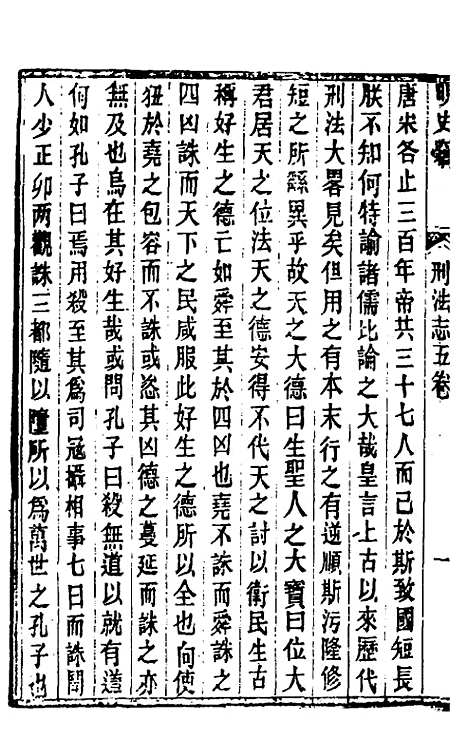 刑法志五卷
一
唐宋各止三百年帝共三十七人而已於斯致國短長
朕不知何特諭諸儒比論之大哉皇言上古以來歷代
刑法大畧見矣但用之有本末行之有逆順斯污隆修
短之所繇異乎故天之大德曰生聖人之大寶曰位大
君居天之位法天之德安得不代天之討以衛民生古
稱好生之德亡如舜至其於四凶也堯不誅而舜誅之
四凶誅而天下之民咸服此好生之德所以全也向使
狃於堯之包容而不誅或恣其凶德之蔓延而誅之亦
無及也烏在其好生哉或問孔子曰殺無道以就有道
何如孔子曰焉用殺至其爲司寇攝相事七日而誅聞
人少正卯两觀誅三都隨以墮所以爲萬世之孔子也